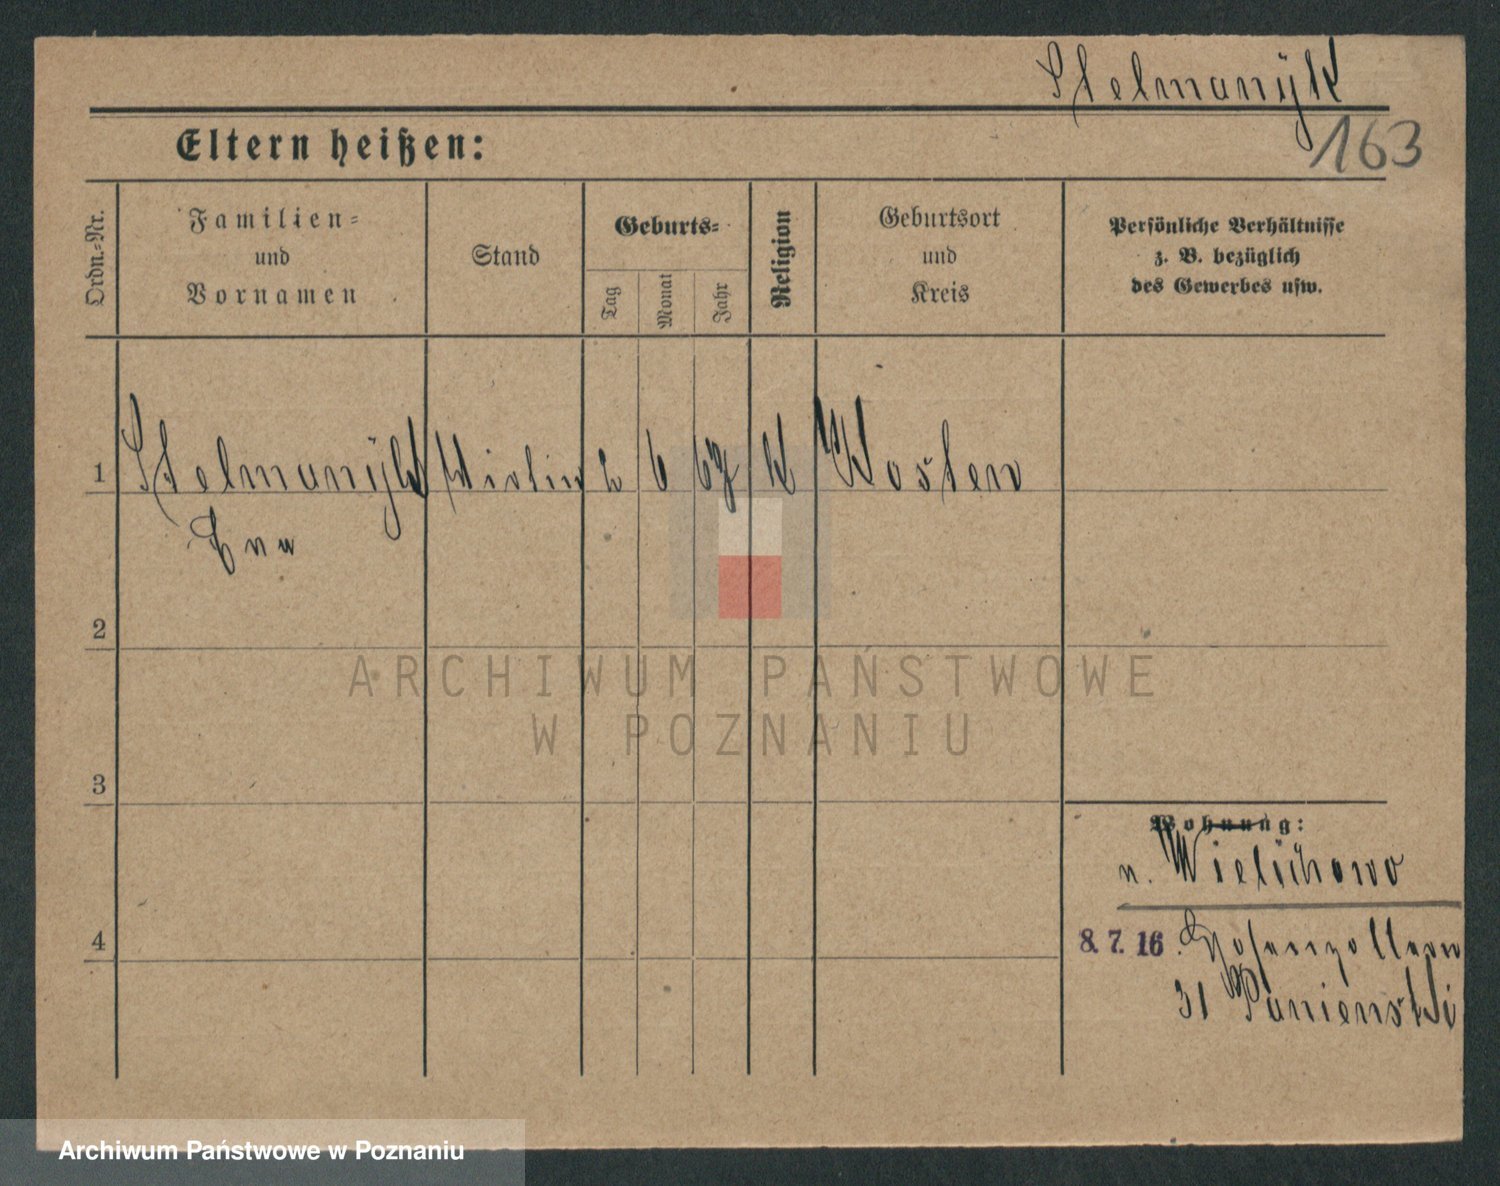 Stelmanÿk
163
Eltern heißen:
Ordn.-Nr.
Familien-
und
Vornamen
Stand
Geburts-
Tag
Monat
Jahr
Religion
Geburtsort
und
Kreis
Persönliche Verhältnisse
z. B. bezüglich
des Gewerbes usw.
1 Stelmanÿk 2 6 K Kosten
Eva
2
ARCHIWUM PAŃSTWOWE
W POZNANIU
3
Wohnung:
n. Wielichowo
4
8. 7. 16. Hohenzollern
31 Panienski
Archiwum Państwowe w Poznaniu